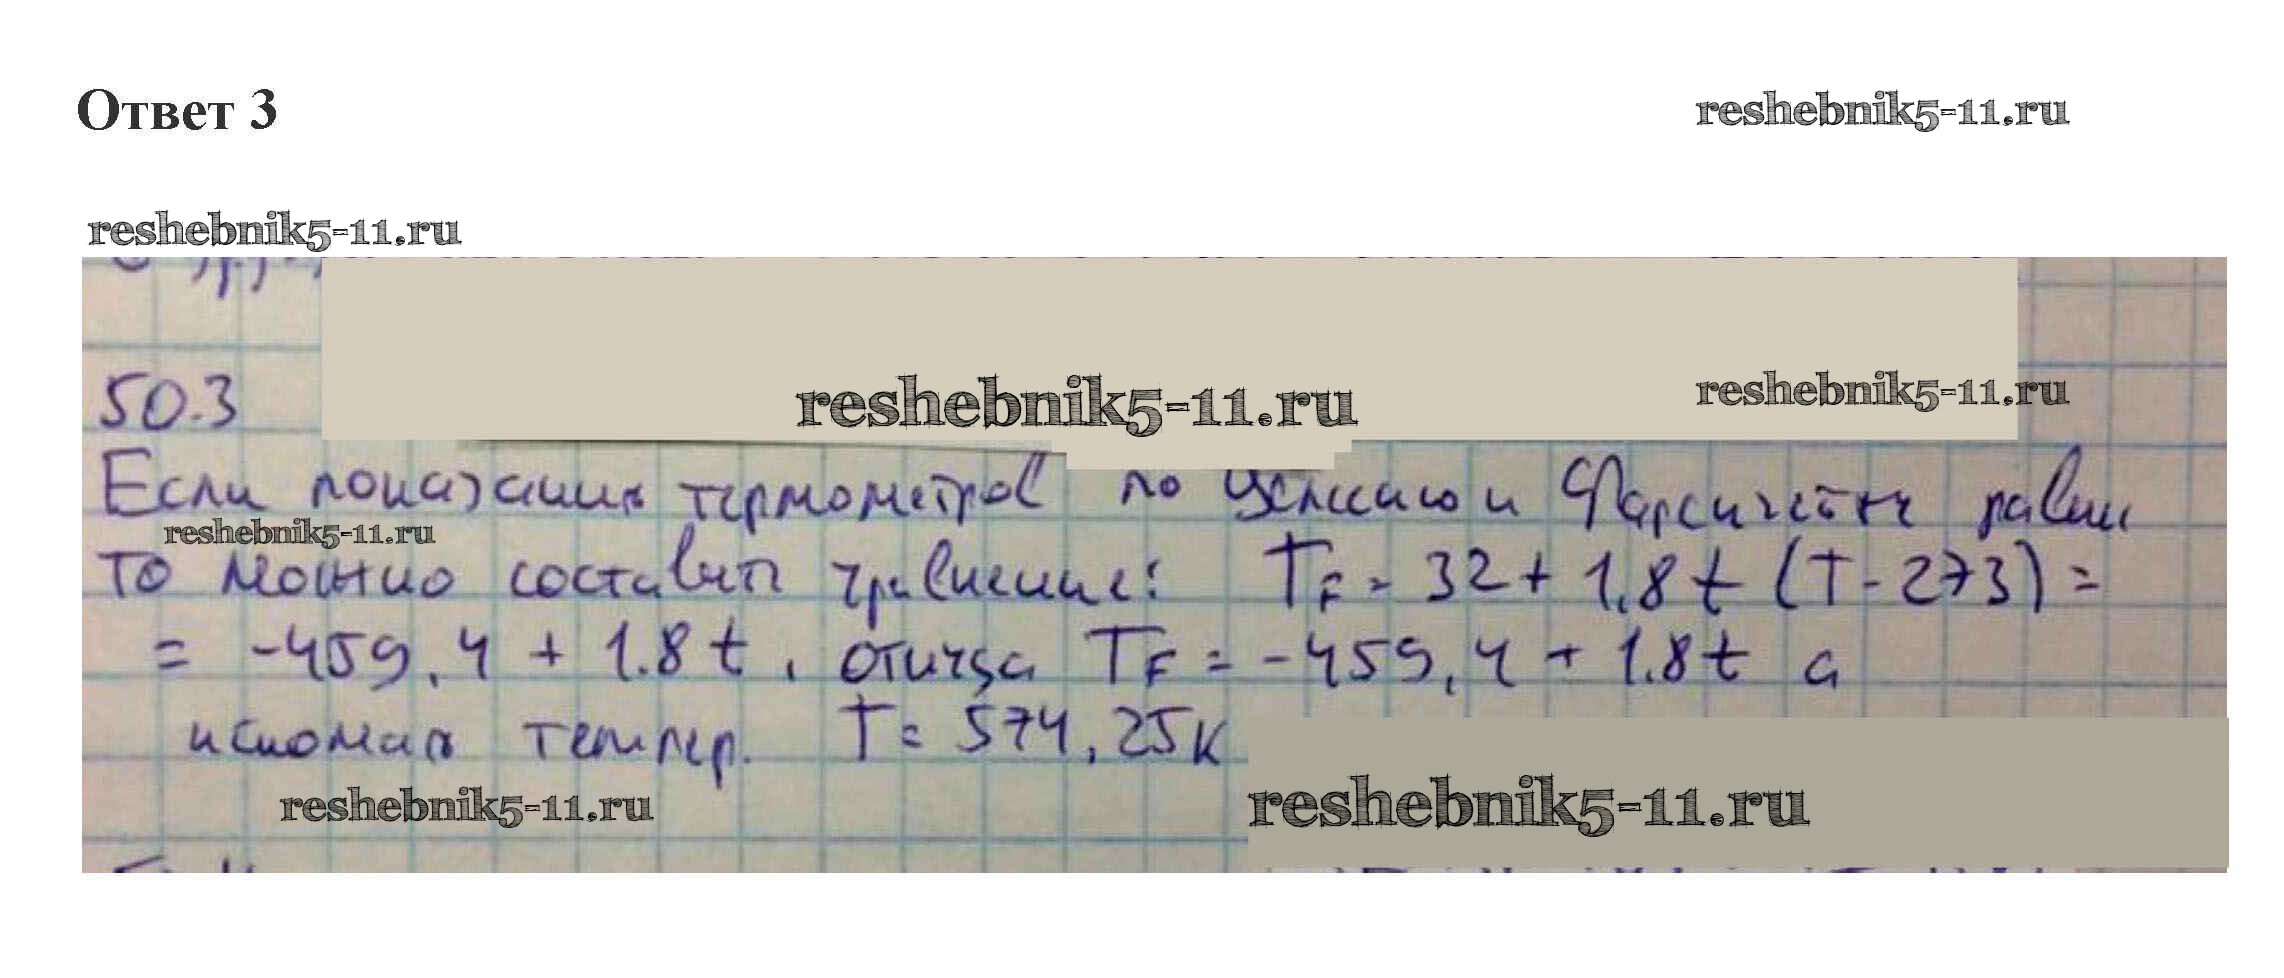 Ответ 3
reshebnik5-11.ru
reshebnik5-11.ru
50.3
reshebnik5-11.ru
reshebnik5-11.ru
Если показания термометров по Цельсию и Фаренгейту равны
reshebnik5-11.ru
то можно составить уравнение: T_F = 32 + 1.8 t (T - 273) =
= -459,4 + 1.8 t , откуда T_F = -459,4 + 1.8 t а
искомая темпер. T = 574,25 К
reshebnik5-11.ru
reshebnik5-11.ru